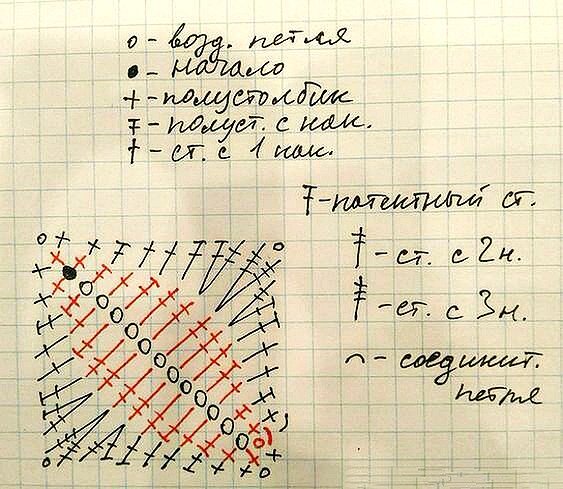 о - возд. петля
● - начало
+ - полустолбик
- полуст. с нак.
† - ст. с 1 нак.
- патентный ст.
- ст. с 2н.
- ст. с 3н.
⌒ - соединит.
петля